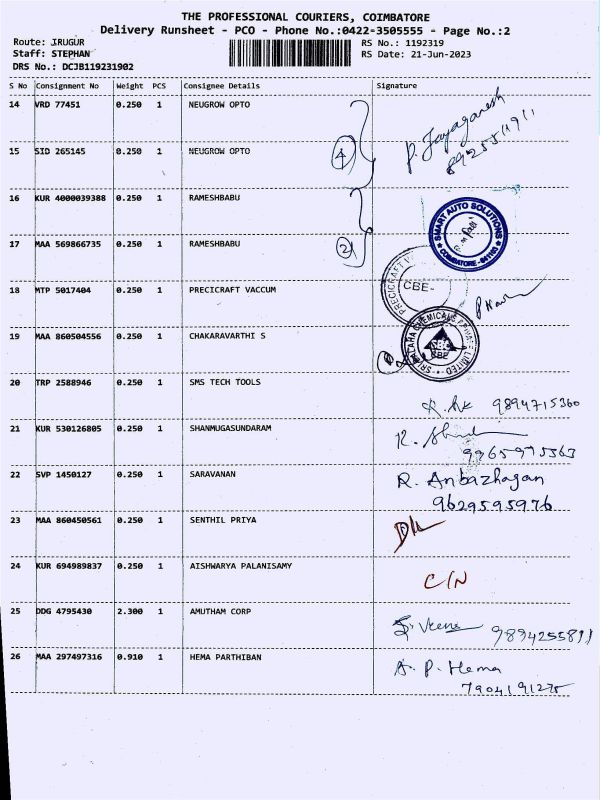 THE PROFESSIONAL COURIERS, COIMBATORE
Delivery Runsheet - PCO - Phone No.:0422-3505555 - Page No.:2
Route: IRUGUR RS No.: 1192319
Staff: STEPHAN RS Date: 21-Jun-2023
DRS No.: DCJB119231902
S No Consignment No Weight PCS Consignee Details Signature
14 VRD 77451 0.250 1 NEUGROW OPTO
P. Jayaganesh
15 SID 265145 0.250 1 NEUGROW OPTO
4
16 KUR 4000039388 0.250 1 RAMESHBABU
SMART AUTO SOLUTIONS
17 MAA 569866735 0.250 1 RAMESHBABU
2
COIMBATORE
18 MTP 5017404 0.250 1 PRECICRAFT VACCUM
PRECICRAFT
CBE-
19 MAA 860504556 0.250 1 CHAKARAVARTHI S
CHEMICALS PRIVATE LIMITED
SBC
CBE
20 TRP 2588946 0.250 1 SMS TECH TOOLS
9894715360
21 KUR 530126805 0.250 1 SHANMUGASUNDARAM
9965975363
22 SVP 1450127 0.250 1 SARAVANAN
R. Anbazhagan
9629595976
23 MAA 860450561 0.250 1 SENTHIL PRIYA
24 KUR 694989837 0.250 1 AISHWARYA PALANISAMY
C/N
25 DDG 4795430 2.300 1 AMUTHAM CORP
Veena 9894255811
26 MAA 297497316 0.910 1 HEMA PARTHIBAN
A. P. Hema
7904191275